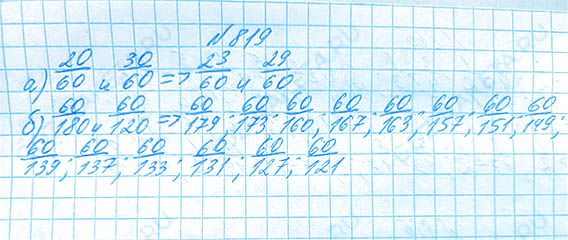 №819
а) 20/60 и 30/60 => 23/60 и 29/60
б) 60/180 и 60/120 => 60/179; 60/173; 60/160; 60/167; 60/163; 60/157; 60/151; 60/149;
60/139; 60/137; 60/133; 60/131; 60/127; 60/121